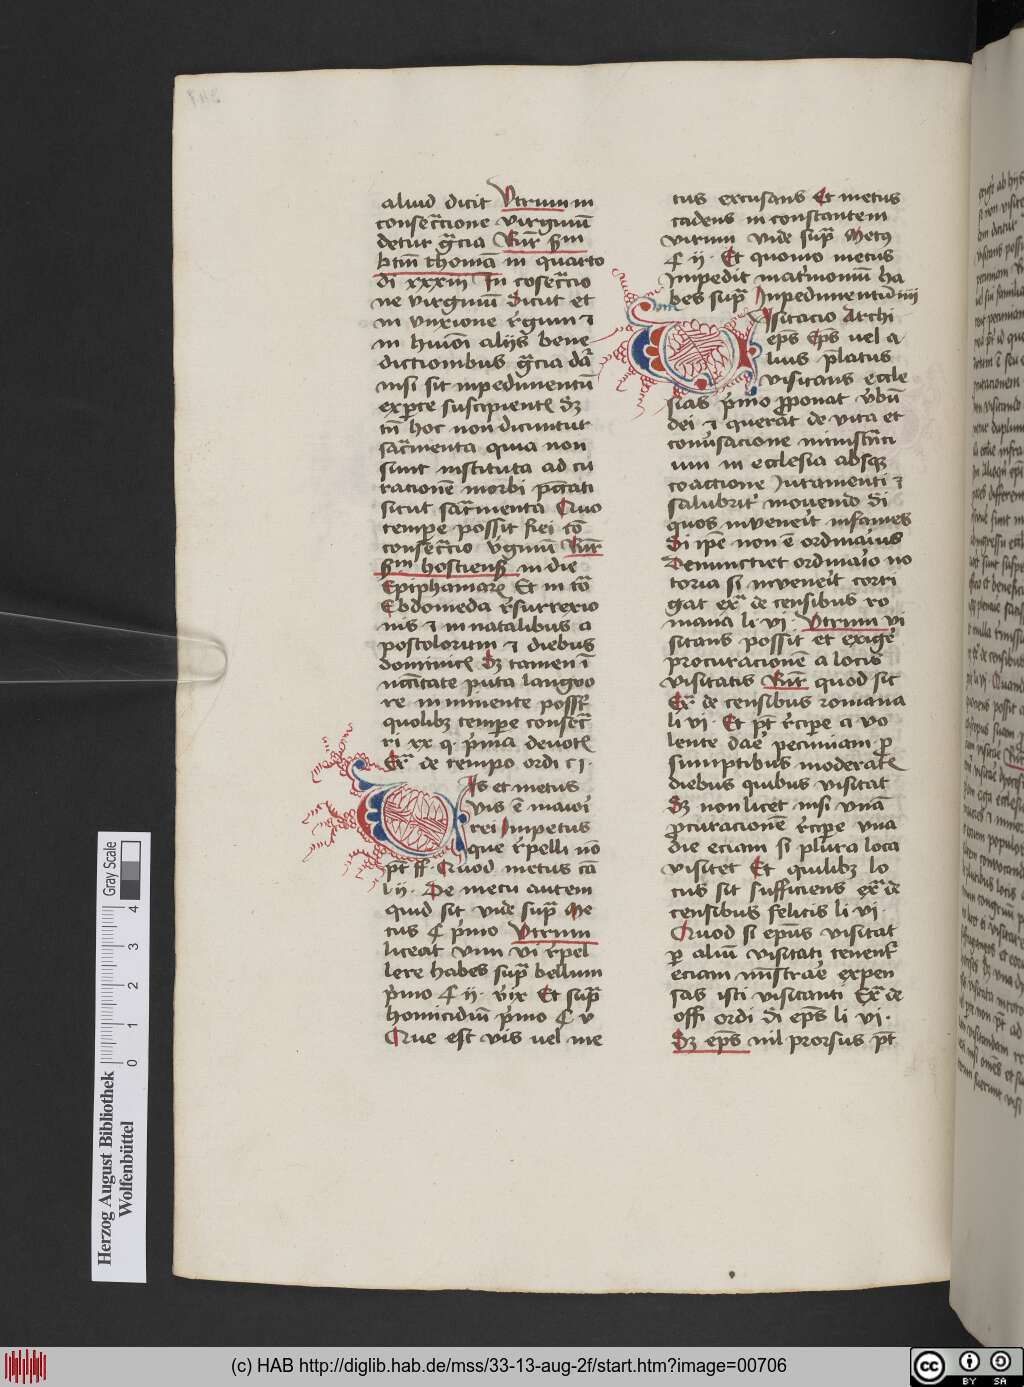 aliud dicit Utrum in
consecr̄cione virginū
detur gr̄cia Rn̄r scd̄m
btm̄ thomā in quarto
di xxxiii In cosecr̄cio
ne virginū dicut et
in vnxione r̄gum ⁊
in huiōi alijs bene
dictionibus gr̄cia dat̄
nisi sit inpedimentū
ex pte suscipientꝭ Sꝫ
tn̄ hoc non dicuntur
sacr̄menta quia non
sunt instituta ad cu
rationē morbi pcc̄ati
sicut sacr̄menta Quo
tempe possit fiei cō
consecr̄cio v̄ginū Rn̄r
scd̄m hostiensē in die
Epiphaniarꝫ Et in tō
Ebdomeda r̄surrexio
nis ⁊ in natalibus a
postolorum ⁊ diebus
dominicꝭ Sꝫ tamen ī
nccītate puta langvo
re inminente possꝫ
quolibꝫ tempe consecr̄
ri xx q. p̄ma deuotꝭ
Exͣ de tempo ordi ci.
Vis et metus
vis ē maioꝭ
rei Impetus
que r̄pelli nō
pt̄ ff. Quod metus cā
l ij. De metu autem
quid sit vide supͣ Me
tus ¶ p̄mo Utrum
liceat vim vi r̄pel
lere habes supͣ bellum
p̄mo ¶ ii. r̄ix Et supͣ
homicidiū p̄mo ¶ v
Que est vis uel me
tus excusans Et metus
cadens in constantem
virum vide supͣ Metꝰ
¶ ij. Et quomo metus
Impedit mat̄rmoniū ha
bes supͣ Inpedimentū iiii
Visitacio Archi
ep̄s Ep̄s uel a
lius p̄latus
visitans eccle
sias p̄mo p̄ponat v̄bū
dei ⁊ querāt de vita et
conu̓sacione minist̄nti
um in ecclesia absqꝫ
coactione Iuramenti ⁊
salubrit̓ mouendo di
quos inveneit infames
Si ip̄e non ē ordinaꝛius
Denunctiet ordinaꝛio no
toria si inveneit corri
gat exͣ de censibus ro
mana li vi. Utrum vi
sitans possit et exige̓
procuracionē a locis
visitatis Rn̄r quod sit
Exͣ de censibus romana
li vi. Et pt̄ r̄cipe ci vo
lente dāe pecuniam p
sumptibus moderatꝭ
diebus quibus visitat
Sꝫ non licet nisi vnā
p̄curacionē r̄cipe vna
die eciam si plura loca
visitet Et quilibꝫ lo
cus sit sufficiens exͣ de
censibus felicis li vi.
Quod si ep̄us visitat
p aliū visitati tenent̓
eciam ministrāe expen
sas isti visitanti Exͣ de
offi ordi di ep̄s li vi.
Sꝫ ep̄s nil prorsus pt̄
Herzog August Bibliothek
Wolfenbüttel
0 1 2 3 4
Gray Scale
(c) HAB http://diglib.hab.de/mss/33-13-aug-2f/start.htm?image=00706
cc BY SA